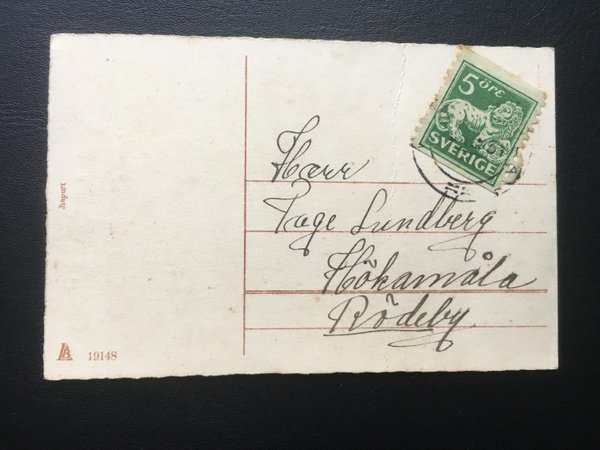 5 ÖRE
SVERIGE
Herr
Tage Lundberg
Hökamåla
Rödeby.
Import
19148